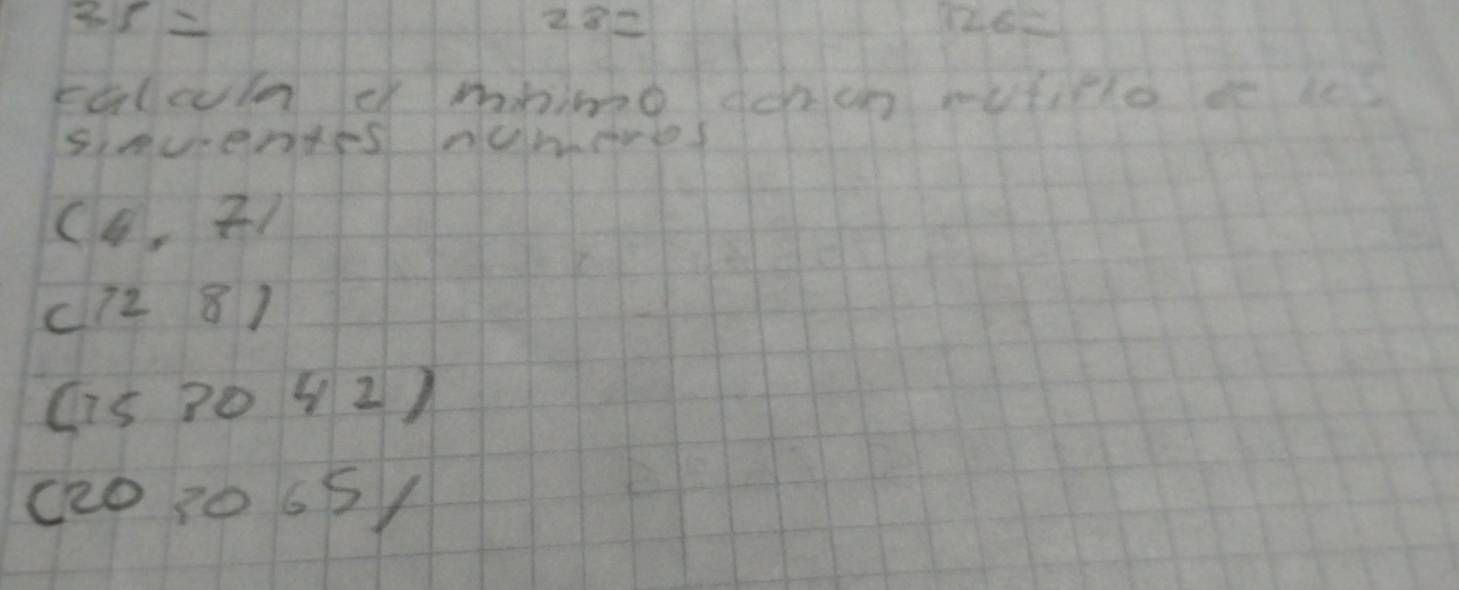 35 = 28= 126=
calcula el minimo comun multiplo de los
siguientes numeros
(4, 7)
(12 8)
(15 30 42)
(20 30 65)